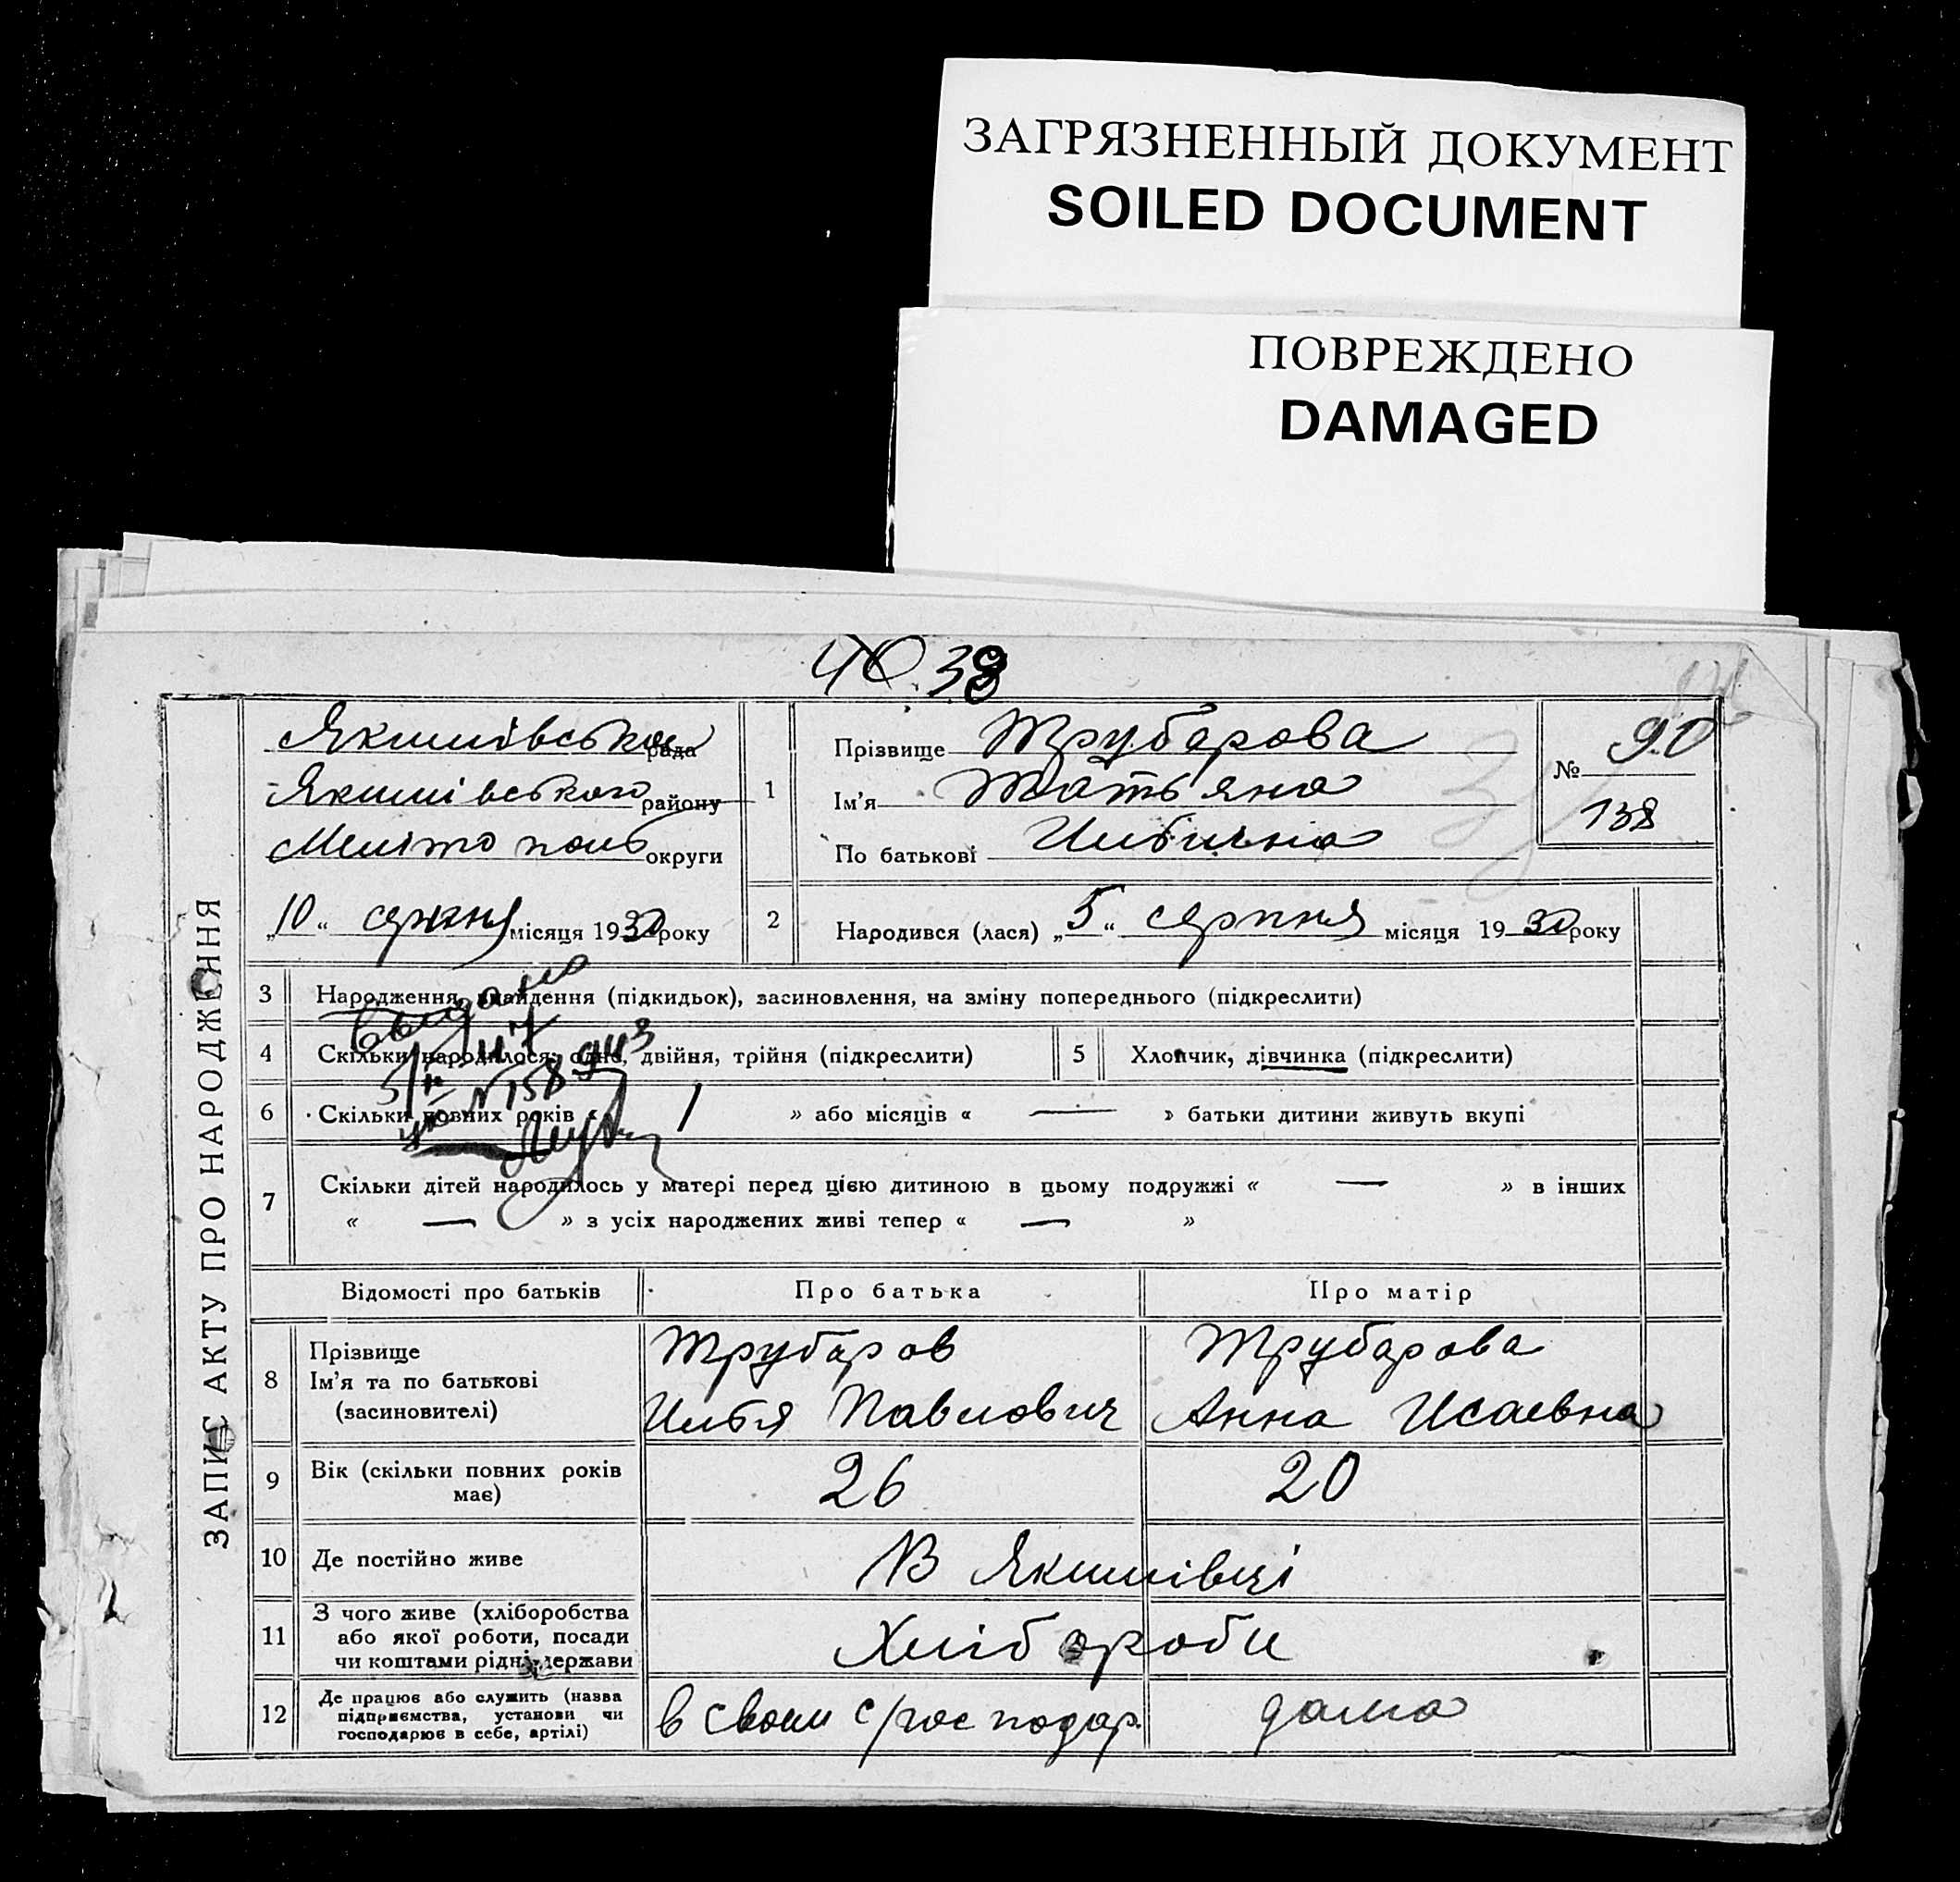 ЗАГРЯЗНЕННЫЙ ДОКУМЕНТ
SOILED DOCUMENT
ПОВРЕЖДЕНО
DAMAGED
40.38
ЗАПИС АКТУ ПРО НАРОДЖЕННЯ
Якимівська рада
Якимівського району
Мелітополь округи
„10“ серпня місяця 1930 року
1 Прізвище Трубарова
Ім'я Татьяна
По батькові Ильінична
№ 90
138
2 Народився (лася) „5“ серпня місяця 1930 року
3 Народження, знайдення (підкидьок), засиновлення, на зміну попереднього (підкреслити)
4 Скільки народилося: одно, двійня, трійня (підкреслити)
5 Хлопчик, дівчинка (підкреслити)
Выдано
№158
6 Скільки повних років « 1 » або місяців « — » батьки дитини живуть вкупі
7 Скільки дітей народилось у матері перед цією дитиною в цьому подружжі « — » в інших
« — » з усіх народжених живі тепер « — »
Відомості про батьків Про батька Про матір
8 Прізвище
Ім'я та по батькові
(засиновителі)
Трубаров
Илья Павлович
Трубарова
Анна Исаевна
9 Вік (скільки повних років
має)
26 20
10 Де постійно живе В Якимівці
11 З чого живе (хліборобства
або якої роботи, посади
чи коштами рідні, держави
Хлібороби
12 Де працює або служить (назва
підприємства, установи чи
господарює в себе, артілі)
в своем с/господар. дома